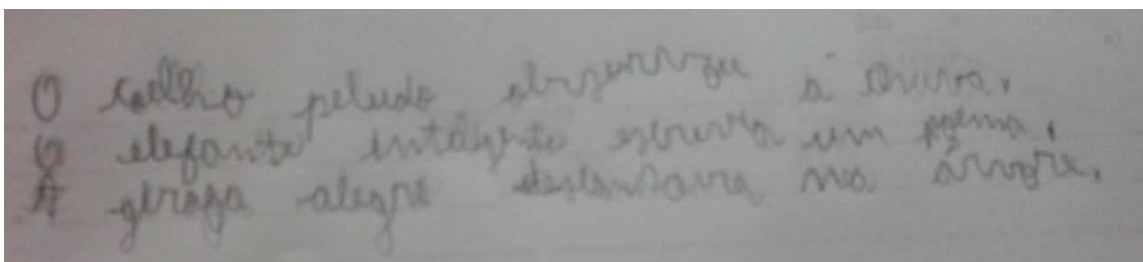 O coelho peludo observou a chuva.
O elefante inteligente escrevia um poema.
A girafa alegre descansava na árvore.